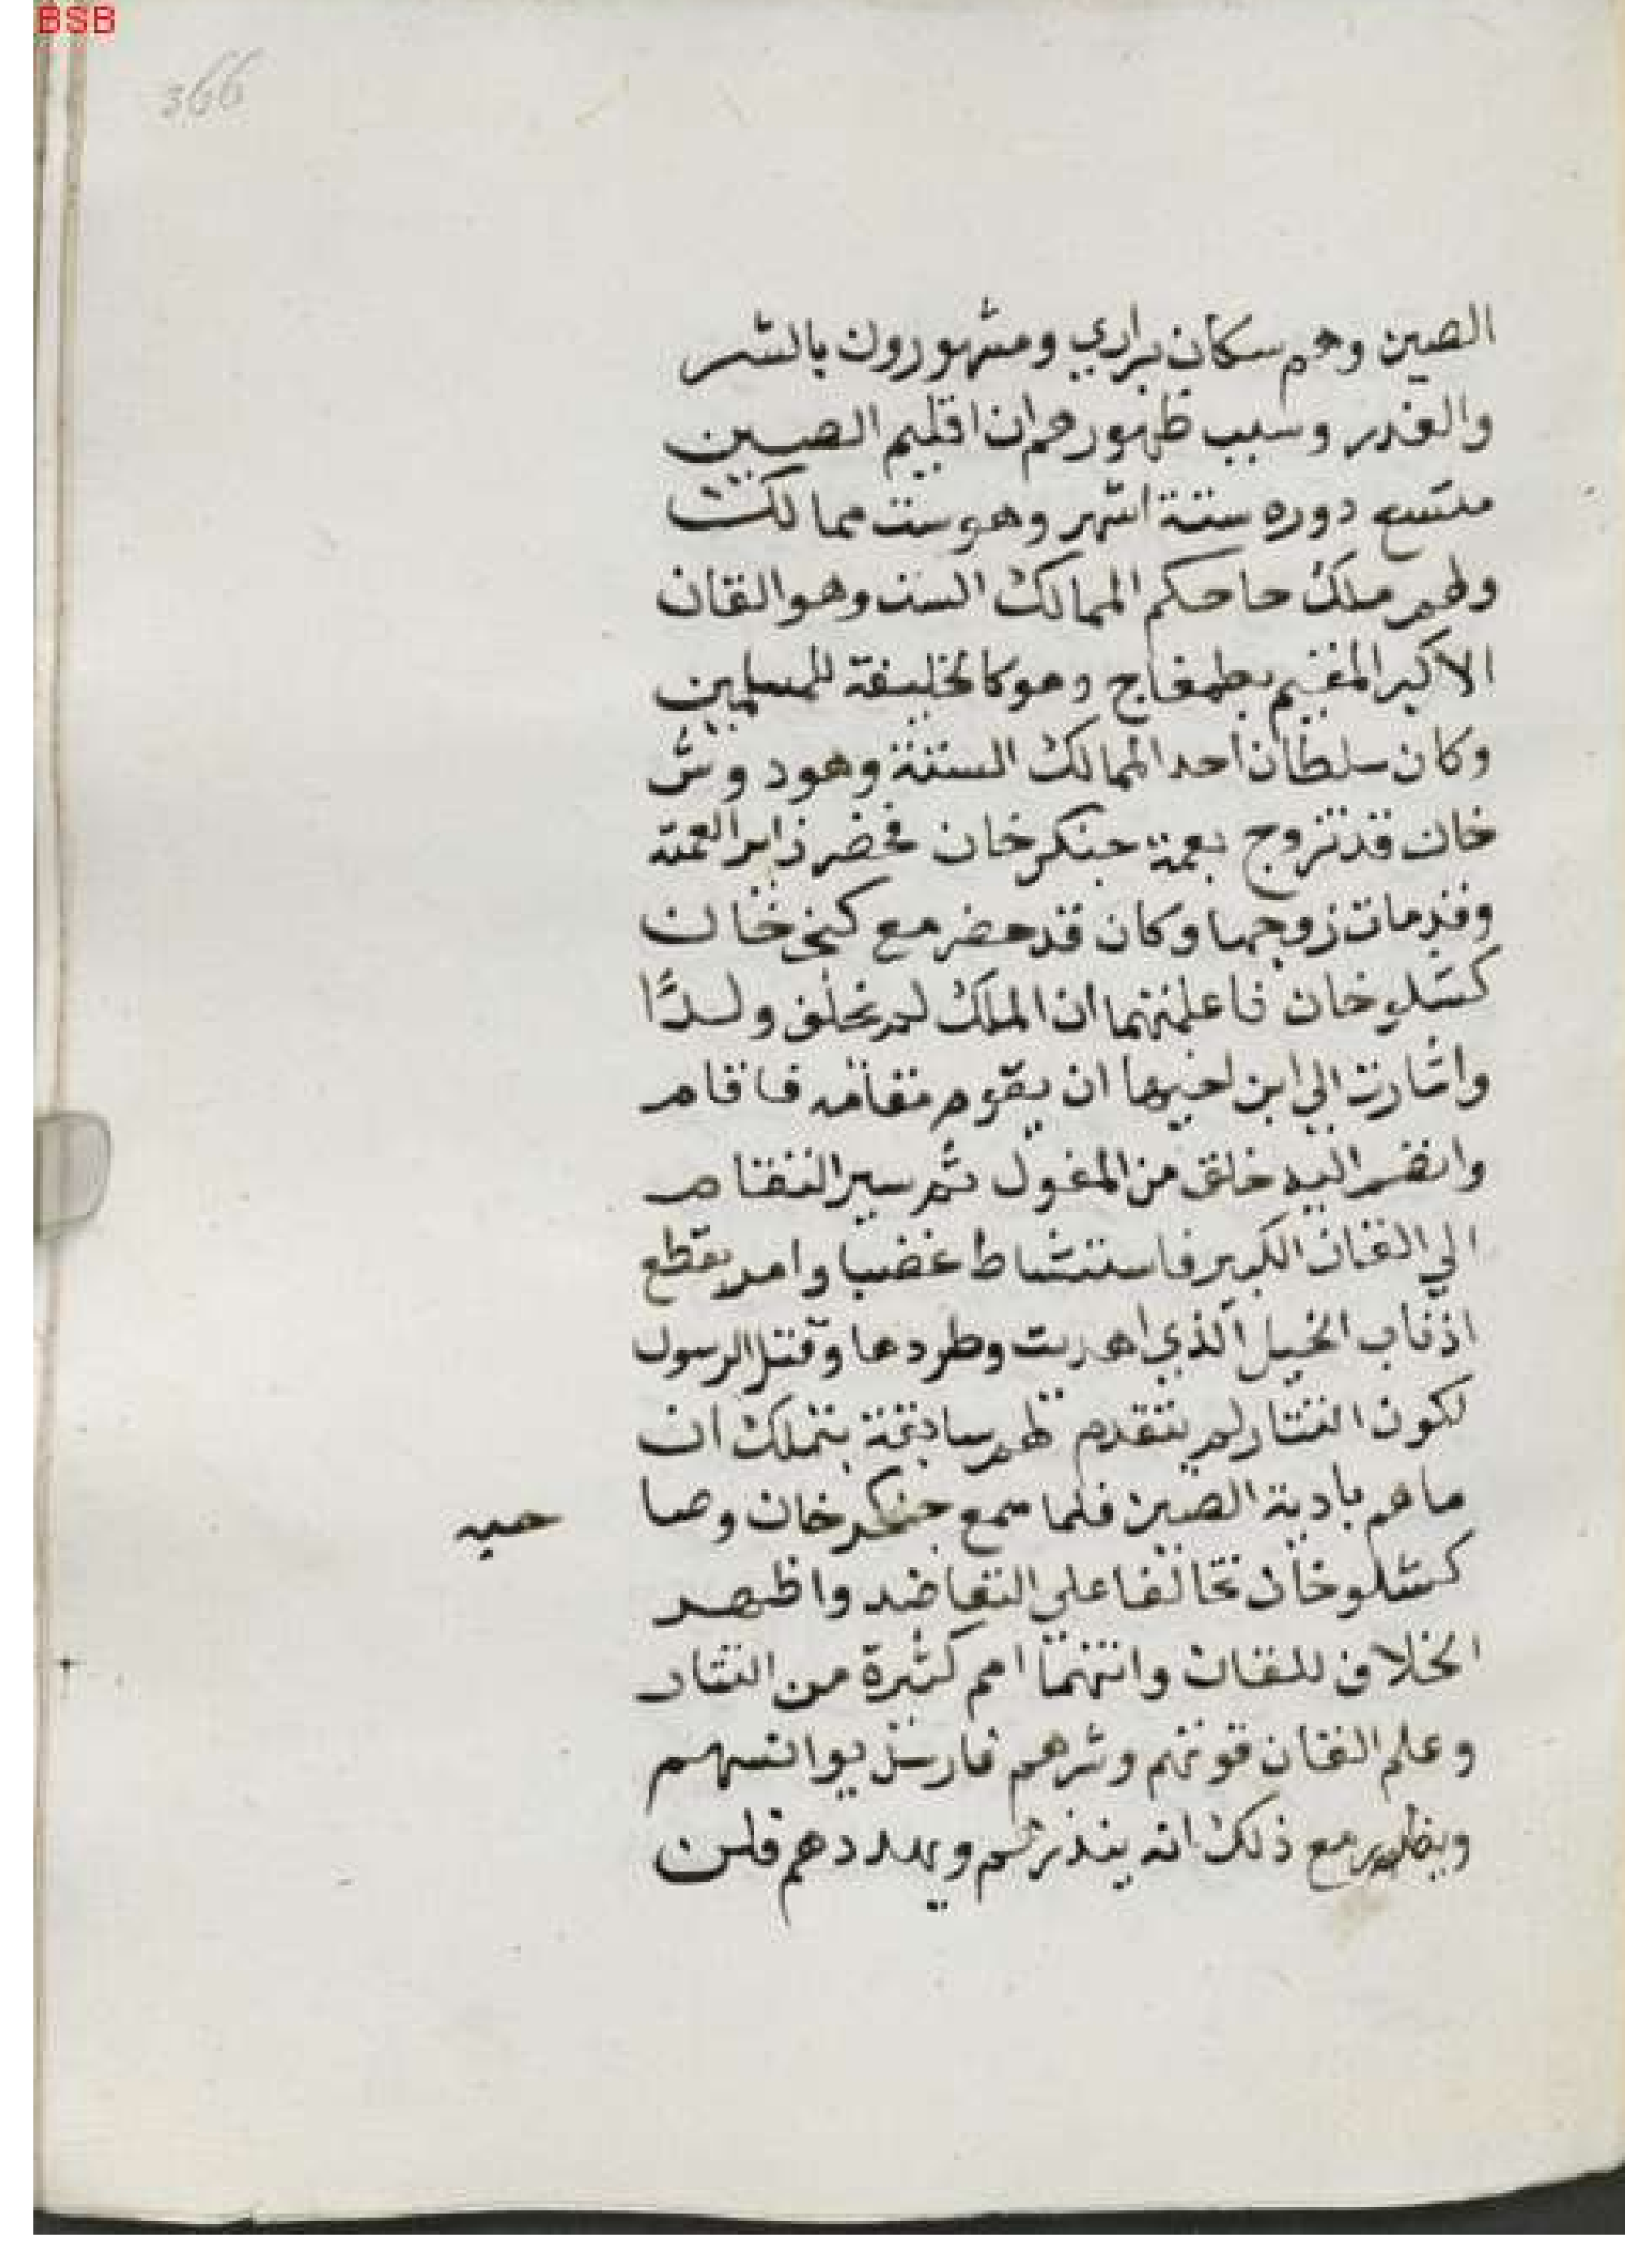 BSB
366
الصين وهم سكان براري ومشهورون بالشر
والغدر وسبب ظهورهم ان اقليم الصين
متسع دوره ستة اشهر وهو ست ممالك
ولهم ملك حاكم الممالك الست وهو القان
الاكبر المقيم بطمغاج وهو كالخليفة للمسلمين
وكان سلطان احد الممالك الستة وهو دوش
خان قد تزوج بعمة جنكزخان فحضر زاير العمته
وقد مات زوجها وكان قد حضر مع خان
كشلوخان فاعلمتهما ان الملك لم يخلف ولدًا
واشارت الي ابن اخيها ان يقوم مقامه فاقام
وانضم اليه خلق من المغول ثم سير التقام
الي القان الكبير فاستشاط غضبا وامر بقطع
اذناب الخيل الذي اهديت وطردها وقتل الرسول
لكون التتار لم يتقدم لهم سابقة بتملك ان
ما هم بادية الصين فلما سمع جنكزخان وصا
حبه
كشلوخان تحالفا علي التعاضد واظهر
الخلاف للقان وانتهما امم كثيرة من التتار
وعلم القان قوتهم وشرهم فارسل يوانسهم
ويظهر مع ذلك انه ينذرهم ويهددهم فلن